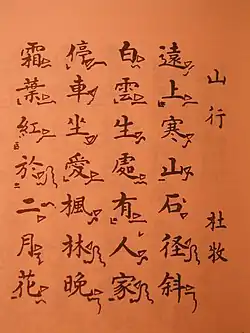 山行　杜牧
遠上寒山石径斜
白雲生處有人家
停車坐愛楓林晚
霜葉紅於二月花